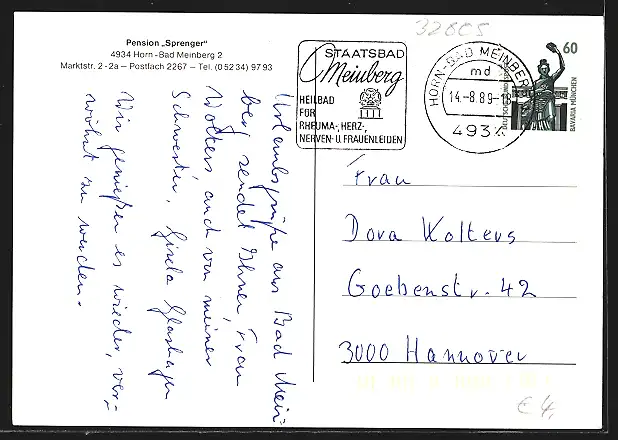 Pension „Sprenger“
4934 Horn-Bad Meinberg 2
Marktstr. 2-2a – Postfach 2267 – Tel. (0 52 34) 97 93
32805
STAATSBAD
Meinberg
HEILBAD
FÜR
RHEUMA-, HERZ-,
NERVEN- U. FRAUENLEIDEN
HORN-BAD MEINBERG
md
14.-8.89-18
4934
60
DEUTSCHE
BAVARIA MÜNCHEN
Urlaubsgrüße aus Bad Mein-
berg sendet Ihnen, Frau
Wolters auch von meiner
Schwester, Gisela
Wir genießen es wieder, ver-
wöhnt zu werden.
Frau
Dora Wolters
Goebenstr. 42
3000 Hannover
€ 4,